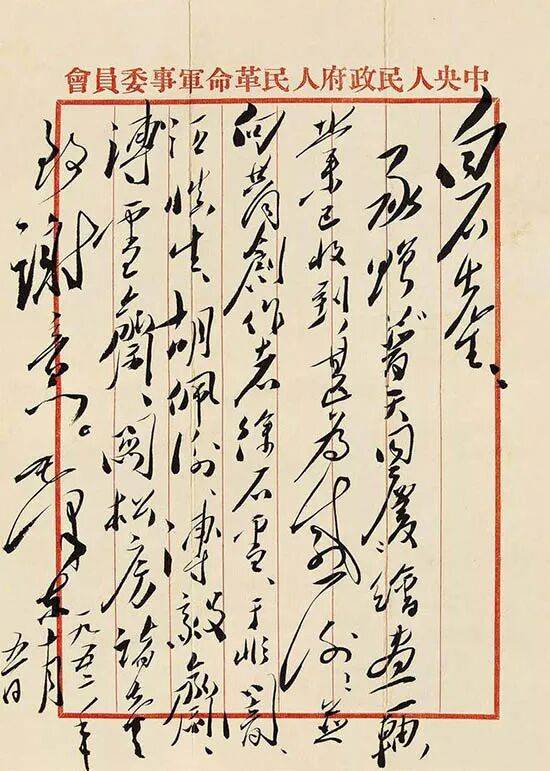 中央人民政府人民革命軍事委員會
白石先生:
承贈普天同慶繪畫一軸,
業已收到,甚為感謝;並
向共同創作者徐石雪、于非闇、
汪慎生、胡佩衡、溥毅齋、
溥雪齋、關松房諸先生
致謝意。毛澤東
一九五二年
十月
五日